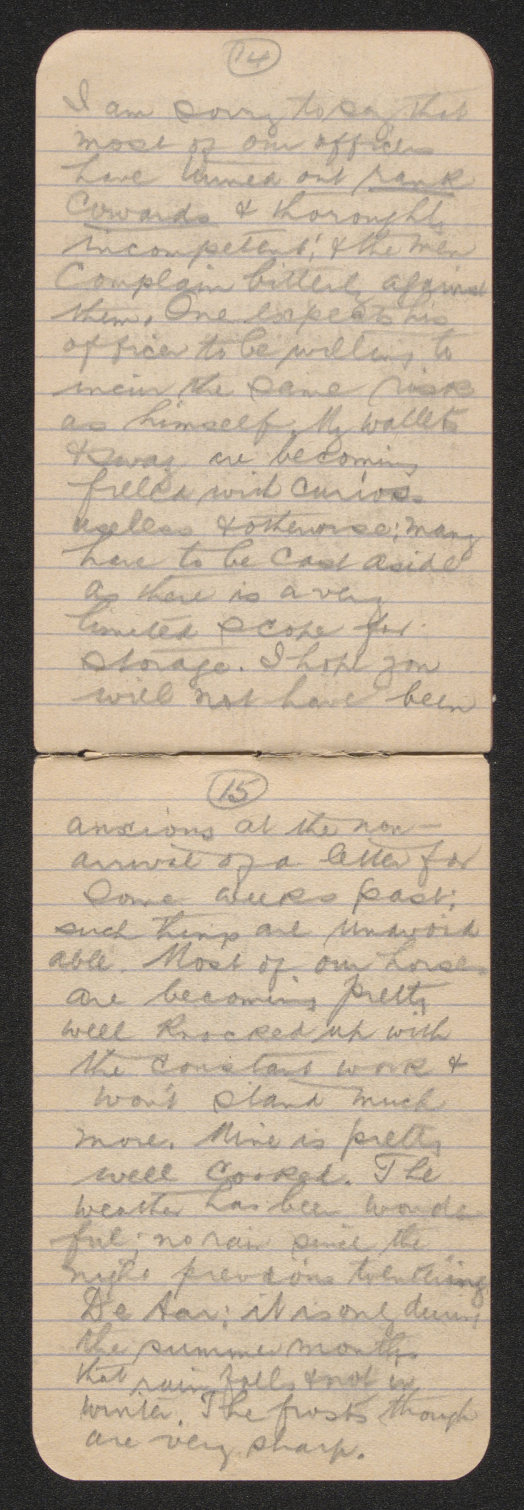 14
I am sorry to say that
most of our officers
have turned out rank
cowards & thoroughly
incompetent; & the men
complain bitterly against
them. One expects his
officer to be willing to
incur the same risk
as himself. My wallets
& swag are becoming
filled with curios.
useless & otherwise; many
have to be cast aside
as there is a very
limited scope for
storage. I hope you
will not have been
15
anxious at the non-
arrival of a letter for
some weeks past;
such things are unavoid
able. Most of our horses
are becoming pretty
well knocked up with
the constant work &
won't stand much
more. Mine is pretty
well cooked. The
weather has been wonder
ful; no rain since the
night previous to entering
De Aar; it is only during
the summer months
that rain falls & not in
winter. The frosts though
are very sharp.